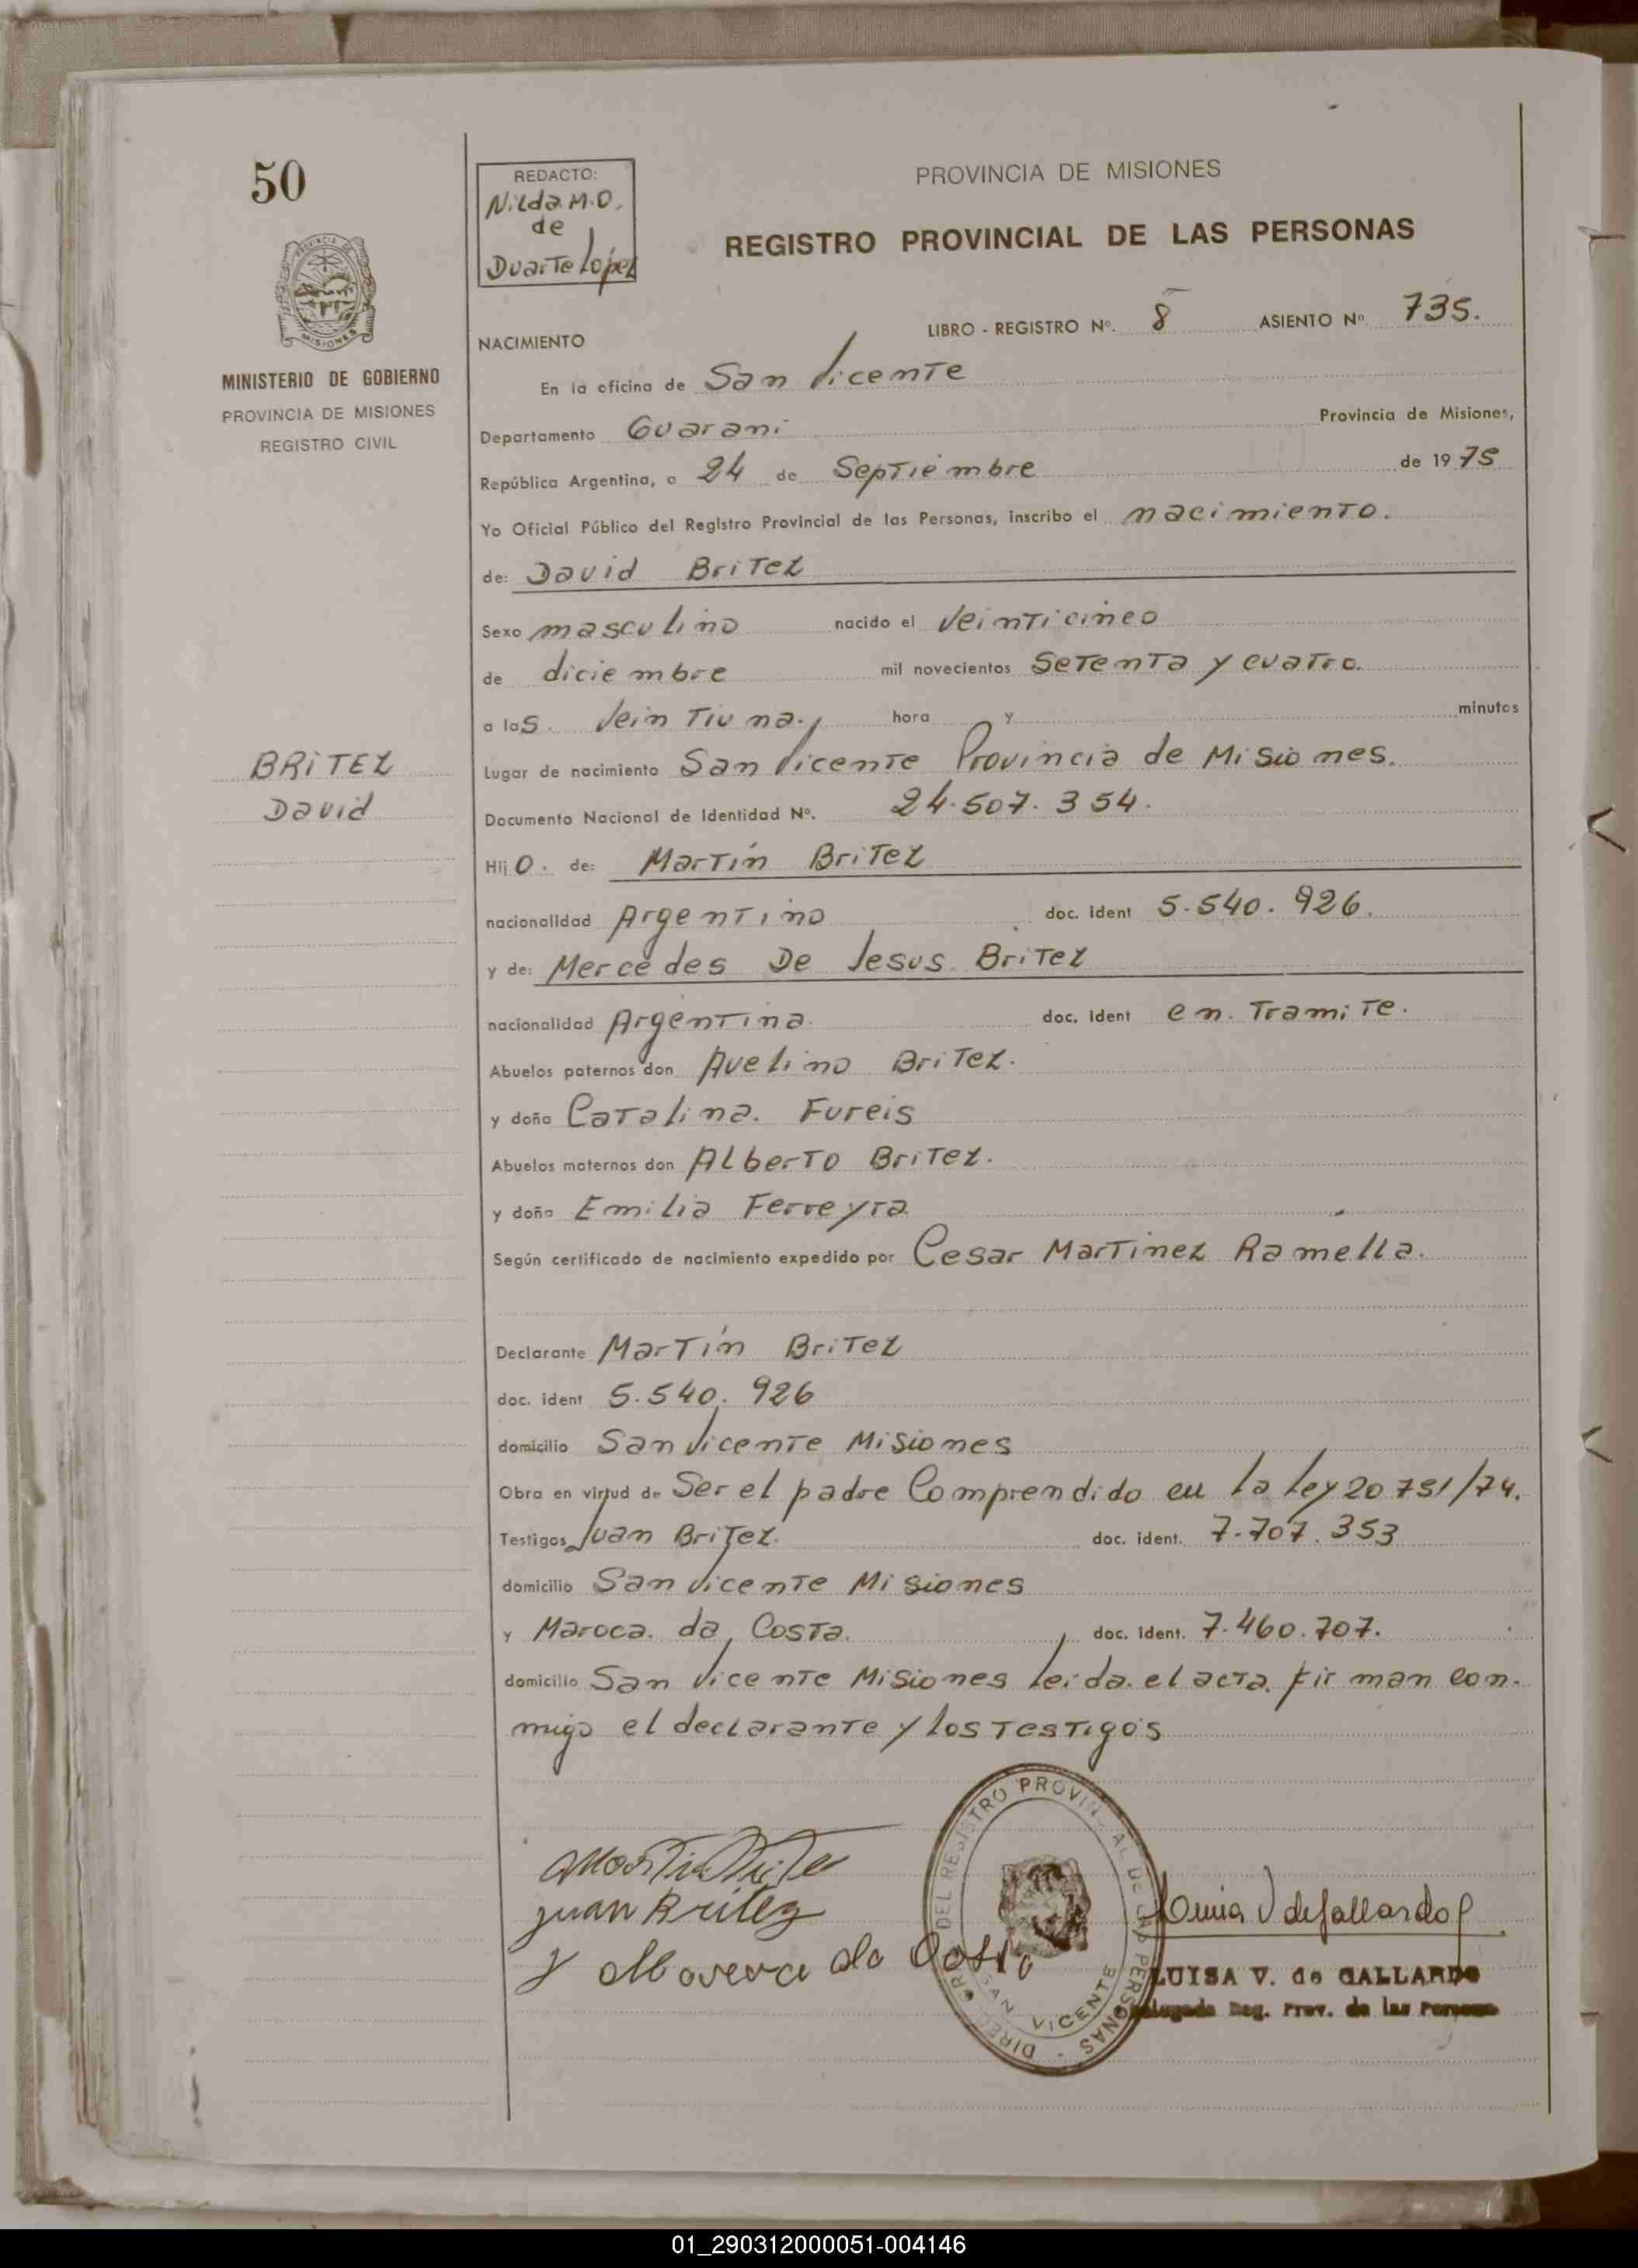 50
REDACTO:
Nilda M.O.
de
Duarte López
PROVINCIA DE MISIONES
REGISTRO PROVINCIAL DE LAS PERSONAS
PROVINCIA DE
MISIONES
MINISTERIO DE GOBIERNO
PROVINCIA DE MISIONES
REGISTRO CIVIL
LIBRO - REGISTRO Nº. 8 ASIENTO Nº. 735.
NACIMIENTO
En la oficina de San Vicente
Departamento Guarani Provincia de Misiones,
República Argentina, a 24 de Septiembre de 1975
Yo Oficial Público del Registro Provincial de las Personas, inscribo el nacimiento.
de: David Britez
Sexo masculino nacido el veinticinco
de diciembre mil novecientos Setenta y cuatro.
a las. veintiuna. hora y minutos
BRITEZ
David
Lugar de nacimiento San Vicente Provincia de Misiones.
Documento Nacional de Identidad Nº. 24.507.354.
Hijo. de: Martín Britez
nacionalidad Argentino doc. ident 5.540.926.
y de: Mercedes De Jesus Britez
nacionalidad Argentina. doc. ident en Tramite.
Abuelos paternos don Avelino Britez.
y doña Catalina. Fureis
Abuelos maternos don Alberto Britez.
y doña Emilia Ferreyra
Según certificado de nacimiento expedido por Cesar Martinez Ramella.
Declarante Martín Britez
doc. ident 5.540.926
domicilio San Vicente Misiones
Obra en virtud de Ser el padre Comprendido en la ley 20751/74.
Testigos Juan Britez. doc. ident. 7.707.353
domicilio San Vicente Misiones
y Maroca. da Costa. doc. ident. 7.460.707.
domicilio San Vicente Misiones leida. el acta. firman con-
migo el declarante y los Testigos
Juan Britez
DIREC. DEL REGISTRO PROVINCIAL DE LAS PERSONAS -
SAN VICENTE
da Costa
LUISA V. de GALLARDO
Delegada Reg. Prov. de las Personas
01_290312000051-004146